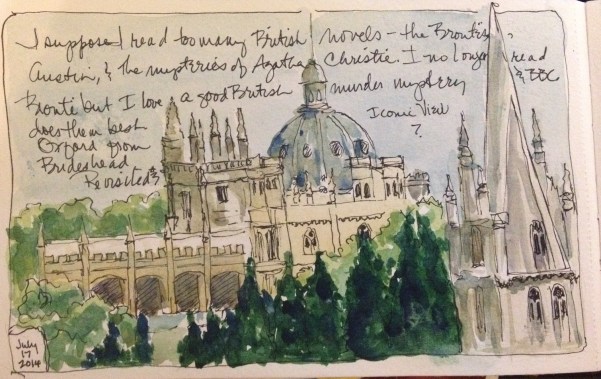 I suppose I read too many British novels - the Brontës,
Austin, & the mysteries of Agatha Christie. I no longer read
Brontë but I love a good British murder mystery & BBC
does them best Iconic View
Oxford from ?
Brideshead
Revisited
July
17
2014